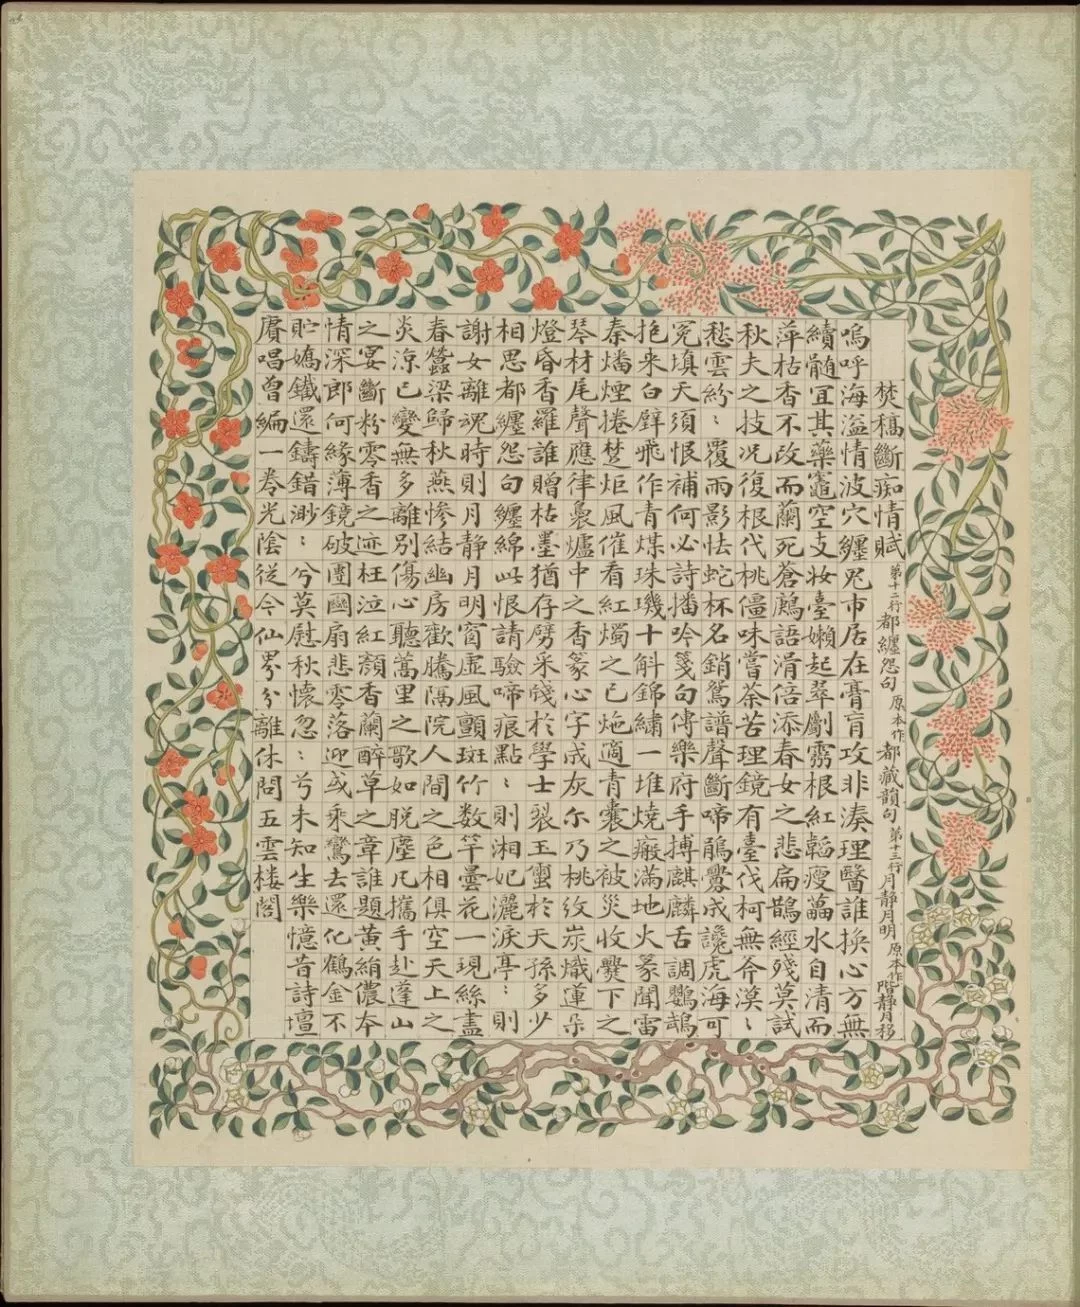 焚稿斷痴情賦 第十二行都纏怨句原本作都藏韻句第十三行月靜月明原本作階靜月移
嗚呼海溢情波穴纏冤市居在膏肓攻非湊理醫誰換心方無
續髓宜其藥竈空支妝臺嬾起翠劚霧根紅韜瘦蘦水自清而
萍枯香不改而蘭死蒼鷓語滑倍添春女之悲扁鵲經殘莫試
秋夫之技况復根代桃僵味嘗荼苦理鏡有臺伐柯無斧漠〻
愁雲紛〻覆雨影怯蛇杯名銷鴛譜聲斷啼鵑釁成讒虎海可
冤填天須恨補何必詩播吟箋句傳樂府手搏麒麟舌調鸚鵡
抱来白璧飛作青煤珠璣十斛錦繡一堆燒瘢滿地火篆聞雷
秦燔煙捲楚炬風催看紅燭之已灺適青囊之被災收爨下之
琴材尾聲應律裊爐中之香篆心字成灰尔乃桃紋炭熾蓮朵
燈昏香羅誰贈枯墨猶存劈采牋於學士裂玉璽於天孫多少
相思都纏怨句纏綿此恨請驗啼痕點〻則湘妃灑淚亭〻則
謝女離魂時則月靜月明窗虛風顫斑竹数竿曇花一現絲盡
春蠶梁歸秋燕慘結幽房歡騰隔院人間之色相俱空天上之
炎涼已變無多離別傷心聽蒿里之歌如脫塵凡攜手赴蓬山
之宴斷粉零香之迹枉泣紅顏香蘭醉草之章誰題黃絹儂夲
情深郎何緣薄鏡破團圞扇悲零落迎或乘鸞去還化鶴金不
貯嬌鐵還鑄錯渺〻兮莫慰秋懷忽〻兮未知生樂憶昔詩壇
賡唱曾編一卷光陰從今仙界分離休問五雲樓閣